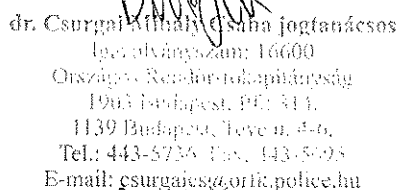 dr. Csurgai Mihály Csaba jogtanácsos
Igazolványszám: 16600
Országos Rendőr-főkapitányság
1903 Budapest, Pf.: 314.
1139 Budapest, Teve u. 4-6.
Tel.: 443-5736 Fax: 443-5695
E-mail: csurgaics@orfk.police.hu